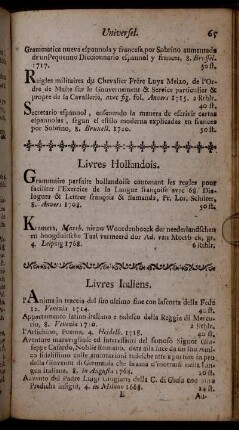 Universel. 65
Grammatica nueva espannola y francesa por Sobrino aumentada
de un Pequenno Diccionario espannol y frances. 8. Brussel.
1717. 30 st.
Reigles militaires du Chevalier Frére Luys Melzo, de l'Or-
dre de Malte sur le Gouvernement & Service particulier &
propre de la Cavallerie, avec fig. fol. Anvers 1615. 2 Rthlr.
40 st.
Secretario espannol, ensennando la manera de escrivir cartas
espannolas, segun el estilo moderno explicadas en frances
por Sobrino, 8. Bruxell. 1720. 30 st.
Livres Hollandois.
Grammaire parfaite hollandoise contenant les regles pour
faciliter l'Exercice de la Langue françoise avec 68 Dia-
logues & Lettres françois & flamands, Fr. Lor. Schlüter,
8. Anvers, 1708. 40 st.
Kramers, Matth. nieuw Woordenboeck der nederlandschen
en hoogduitsche Taal vermeerd dor Ad. van Moerbeek, gr.
4. Leipzig 1768. 6 Rthlr.
Livres Italiens.
l'Anima in traccia del suo ultimo fine con la scorta della Fede
12. Venezia 1714. 40 st.
Appartamento latino-italiano e tedesco della Reggia di Mercu-
rio, 8. Venezia 1710. 2 Rthlr.
l'Architiclino, Poema, 4. 1718. 40 st.
Avventure maravigliose ed intressanti del famoso Signor
Casardo, Nobile Romano,
fidelissimo colle annotazioni tedesche
Giovani di Germania che
Italiana. 8. in Augusta 1764. 20 st.
Avvento del Padre Luigi Giuglaris della C. di Giesù con una
Predicha insigne, 4. in Milano 1668. 24 st.
E Au-